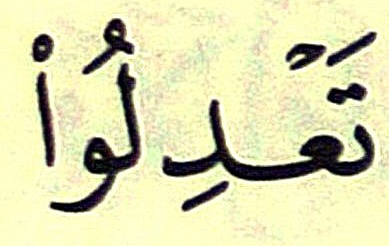 تَعْدِلُوا۟